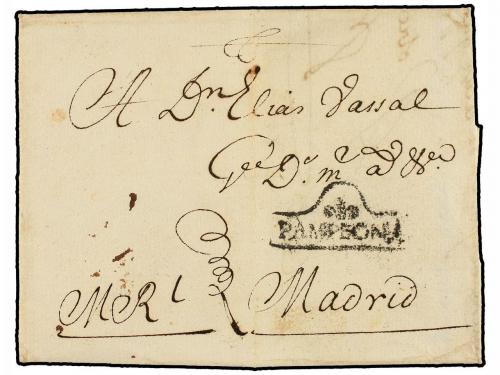 A Dn. Elias Vassal
Ge. Ds. ms. as. &a.
PAMPLONA
M Rl Madrid